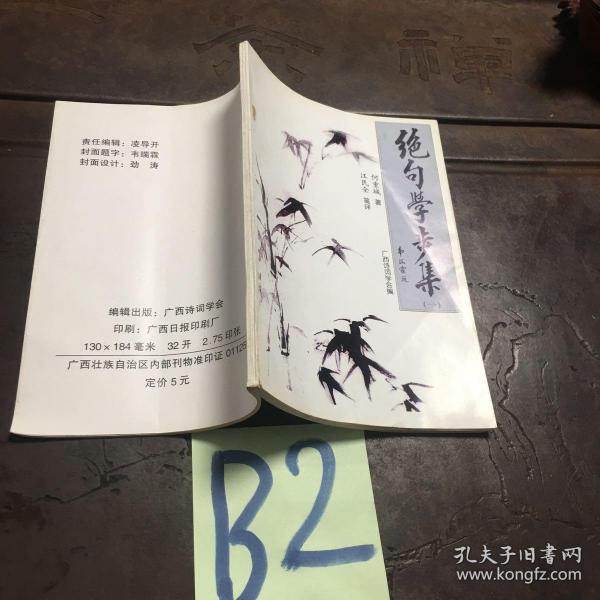 绝句学步集
(一)
韦瑞霖
何重城 著
汪民全 笺评
广西诗词学会编
责任编辑：凌导开
封面题字：韦瑞霖
封面设计：劲涛
编辑出版：广西诗词学会
印刷：广西日报印刷厂
130×184毫米 32开 2.75印张
广西壮族自治区内部刊物准印证 01125
定价5元
B2
孔夫子旧书网
www.kongfz.com